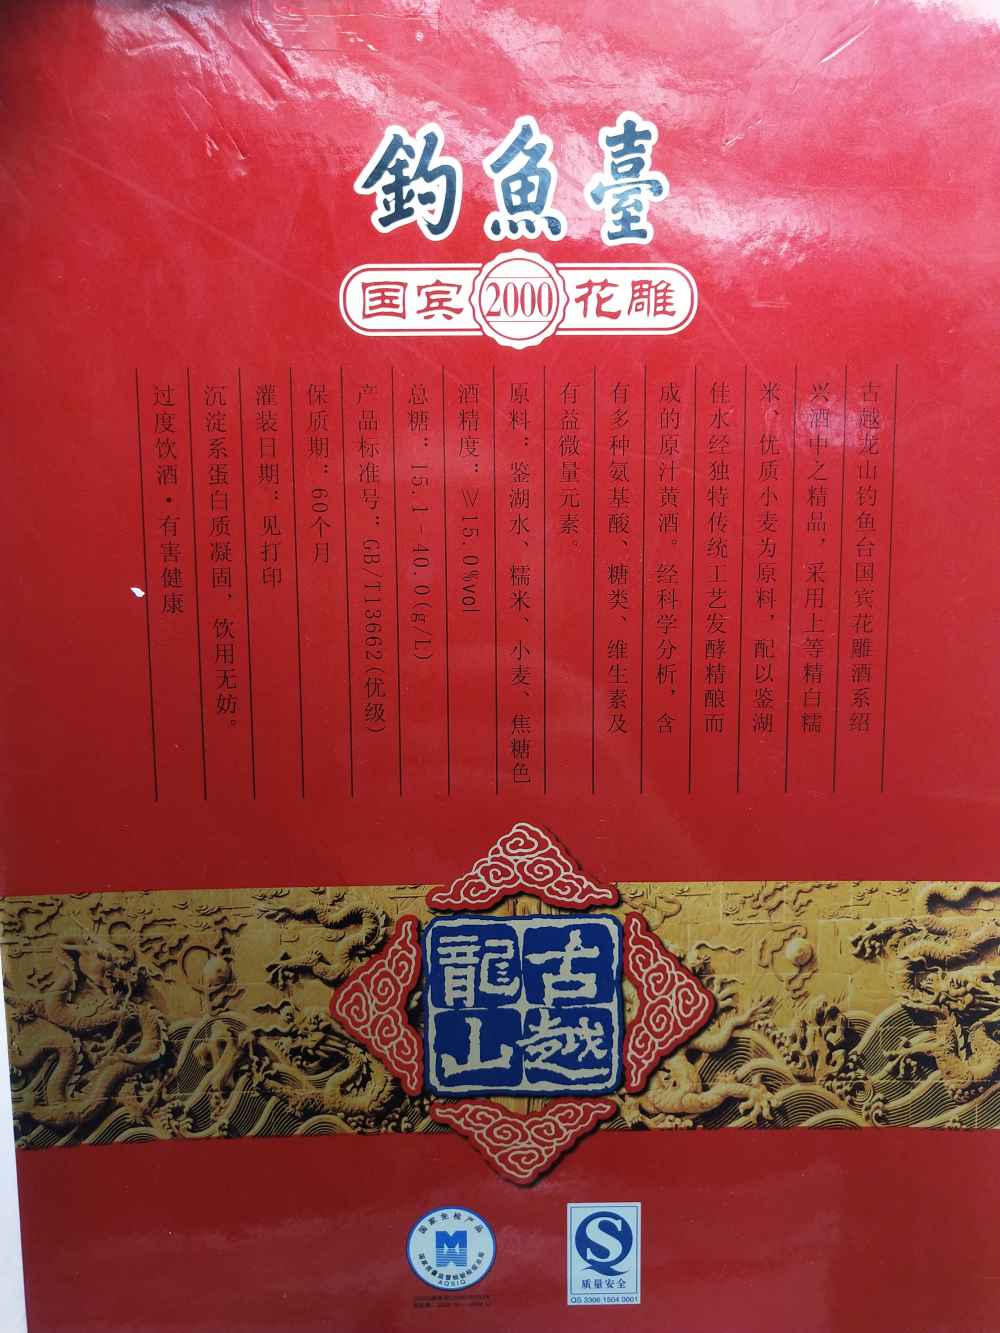 釣魚臺
国宾2000花雕
古越龙山钓鱼台国宾花雕酒系绍
兴酒中之精品，采用上等精白糯
米、优质小麦为原料，配以鉴湖
佳水经独特传统工艺发酵精酿而
成的原汁黄酒。经科学分析，含
有多种氨基酸、糖类、维生素及
有益微量元素。
原料：鉴湖水、糯米、小麦、焦糖色
酒精度：≥15.0%vol
总糖：15.1-40.0(g/L)
产品标准号：GB/T13662(优级)
保质期：60个月
灌装日期：见打印
沉淀系蛋白质凝固，饮用无妨。
过度饮酒·有害健康
古越
龍山
国家免检产品
国家质量监督检验检疫总局
AQSIQ
S
质量安全
QS 3306 1504 0001